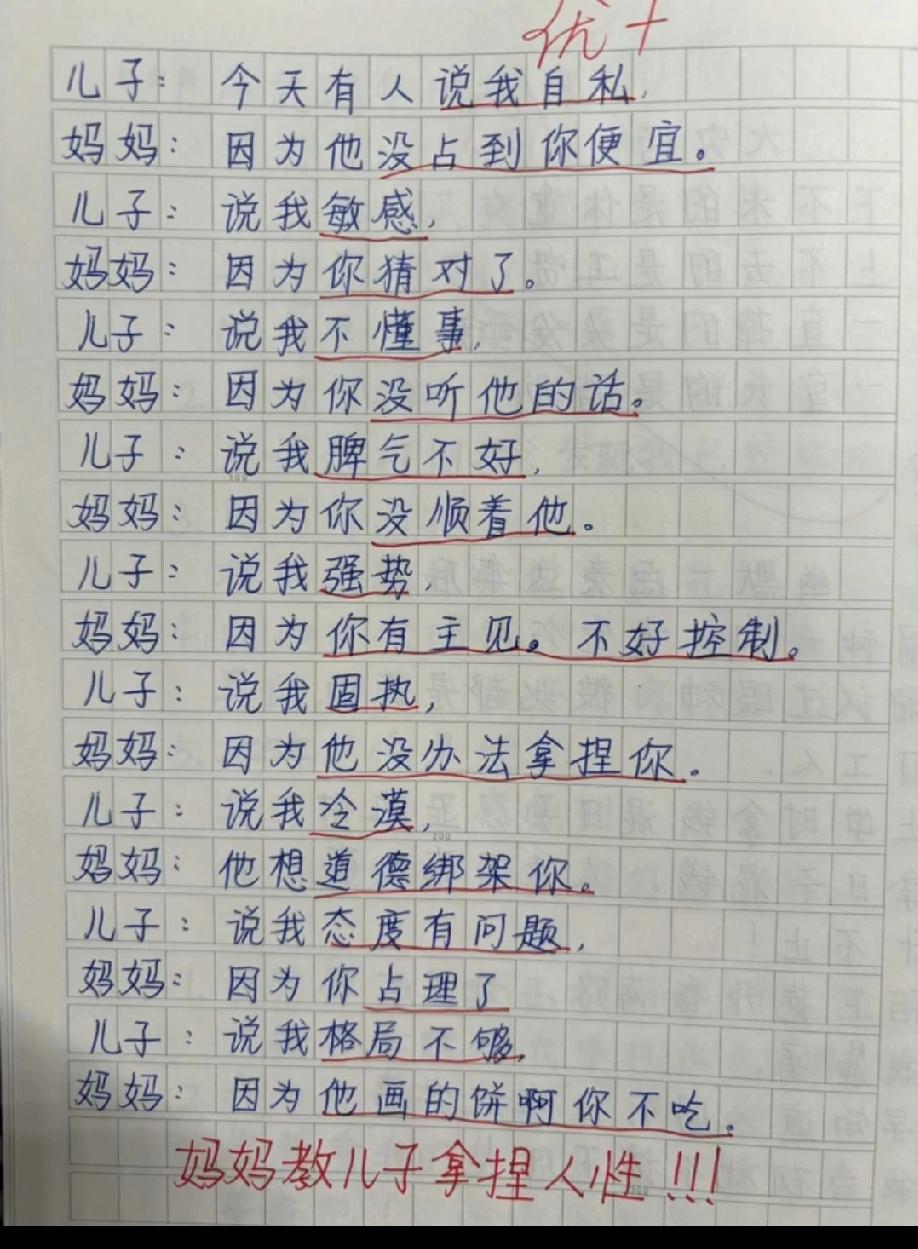 优+
儿子：今天有人说我自私，
妈妈：因为他没占到你便宜。
儿子：说我敏感，
妈妈：因为你猜对了。
儿子：说我不懂事，
妈妈：因为你没听他的话。
儿子：说我脾气不好，
妈妈：因为你没顺着他。
儿子：说我强势，
妈妈：因为你有主见。不好控制。
儿子：说我固执，
妈妈：因为他没办法拿捏你.
儿子：说我冷漠，
妈妈：他想道德绑架你。
儿子：说我态度有问题，
妈妈：因为你占理了
儿子：说我格局不够，
妈妈：因为他画的饼啊你不吃.
妈妈教儿子拿捏人性!!!